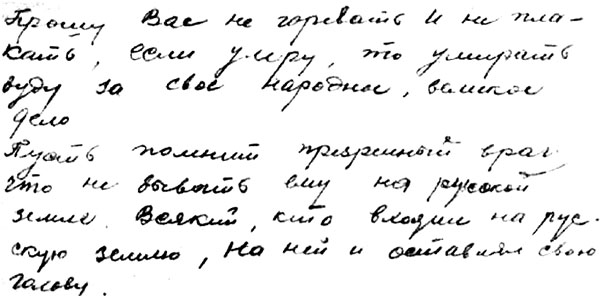 Прошу Вас не горевать и не пла-
кать, если умру, то умирать
буду за свое народное, великое
дело
Пусть помнит презренный враг
что не бывать ему на русской
земле. Всякий, кто входил на рус-
скую землю, на ней и оставлял свою
голову.